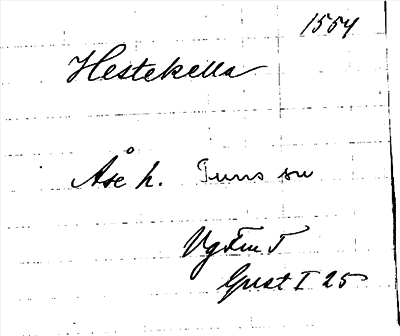 1554
Hestekella
Åse h. Tuns sn
Vg Fru T
Gust I 25